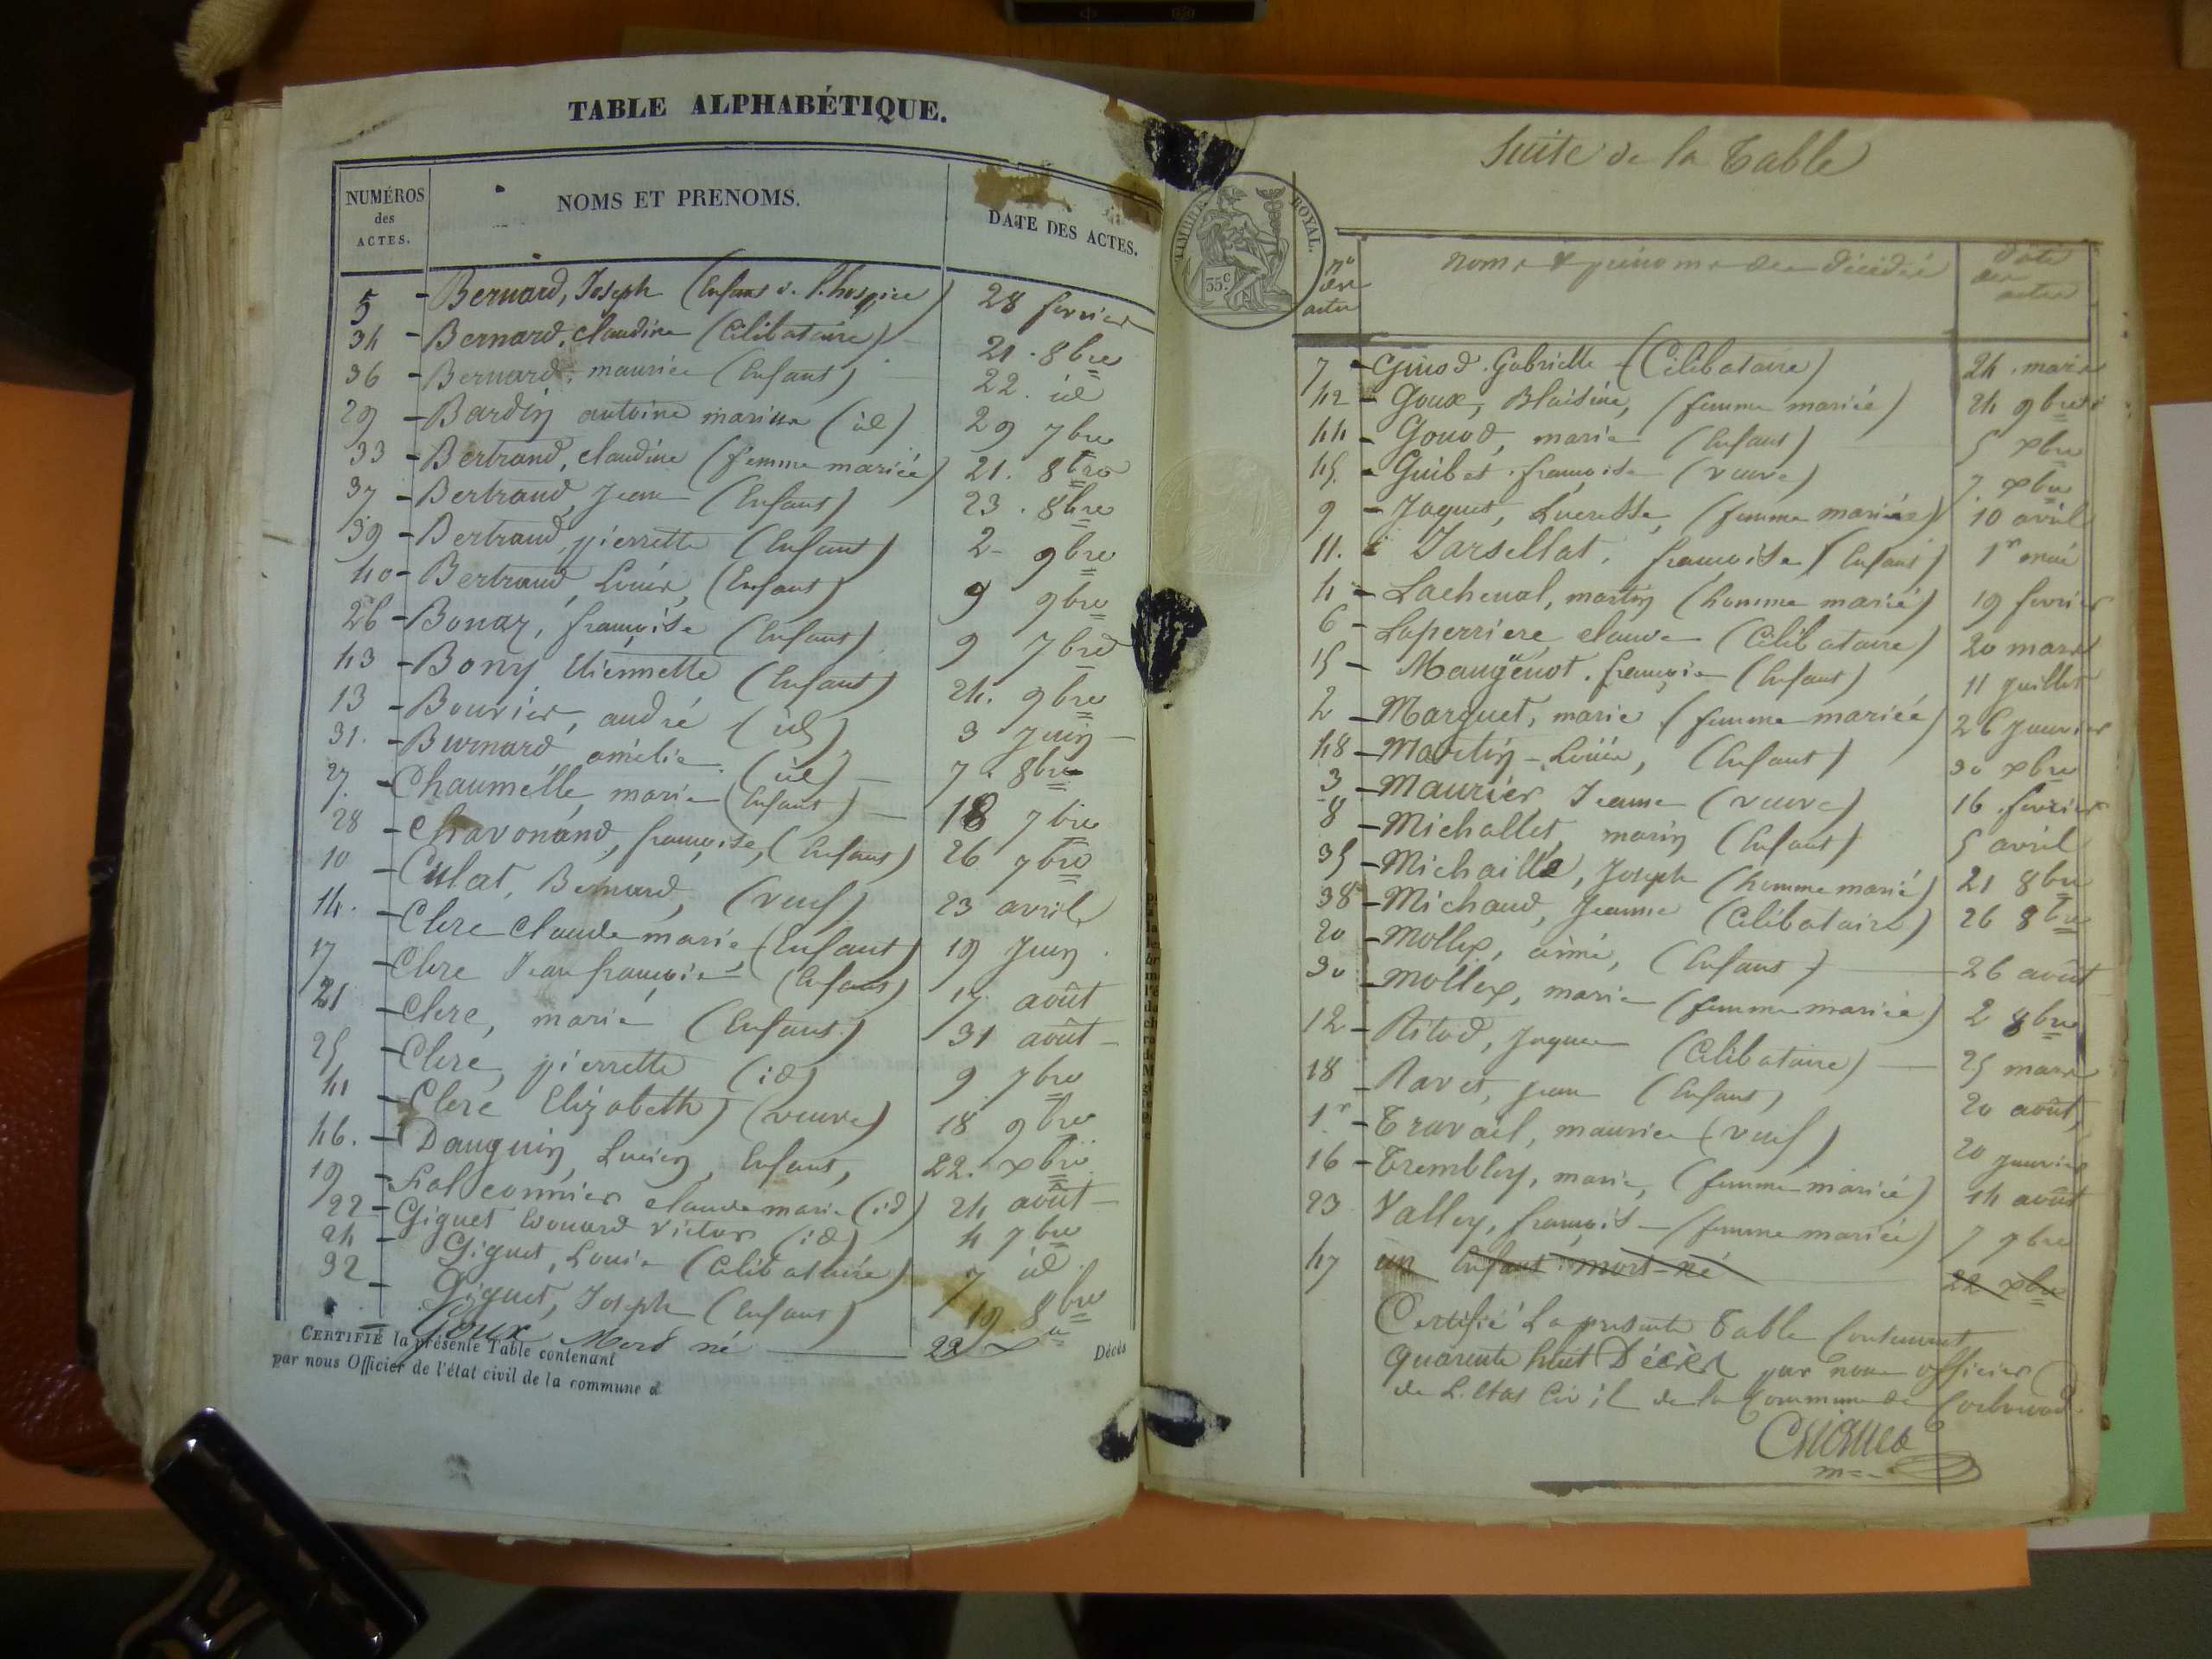 TABLE ALPHABÉTIQUE.
NUMÉROS des ACTES. NOMS ET PRENOMS. DATE DES ACTES.
5 - Bernard, Joseph (Enfant de l'hospice) 28 fevrier
34 - Bernard, claudine (Célibataire) 21. 8bre
36 - Bernard, maurice (Enfant) 22. id
29 - Bardin antoine marius (id) 29 7bre
33 - Bertrand, claudine (femme mariée) 21. 8bre
37 - Bertrand, Jean (Enfant) 23. 8bre
39 - Bertrand, pierrette (Enfant) 2 - 9bre
40 - Bertrand, Louis, (Enfant) 9 9bre
26 - Bonaz, françoise (Enfant) 9 7bre
43 - Bony Etiennette (Enfant) 24. 9bre
13 - Bouvier, andré (id) 3 Juin -
31. - Burnard amélie (id) - 7. 8bre
27. - Chaumelle, marie (Enfant) - 18 7bre
28 - Chavonand, françoise, (Enfant) 26 7bre
10 - Culat, Bernard, (veuf) 23 avril
14. - Clere Claude marie (Enfant) 19 Juin.
17 - Clere Jean françois (Enfant) 17 août
21 - Clere, marie (Enfant) 31 août -
25 - Clere, pierrette (id) 9 7bre
41 - Clere Elizabeth (veuve) 18 9bre
46. - Danguin, Lucien, Enfant, 22. xbre
19 - Falconnier claude marie (id) 24 août -
22 - Giguet Edouard Victor (id) 4 7bre
24 Giguet, Louis (Célibataire) 7 id
32 - Giguet, Joseph (Enfant) 19. 8bre
Goux Mort né 22 xbre
CERTIFIÉ la présente Table contenant Décès
par nous Officier de l'état civil de la commune d
Suite de la Table
TIMBRE ROYAL.
35 c.
nos des actes noms & prénoms des décédés date des actes
7 - Guiod. Gabrielle - (Célibataire) 24. mars
42 - Goux, Blaisine, (femme mariée) 24 9bre
44 - Gonod, marie (Enfant) 5 xbre
45. - Guibet. françoise (veuve) 7 xbre
9 - Jaquet, Lucresse, (femme mariée) 10 avril
11. Jarsellat, françoise (Enfant) 1r mai
4 - Lacheval, martin (homme marié) 19 fevrier
6 - Laperriere, claude (Célibataire) 20 mars
15 - Maugenot. françois (Enfant) 11 Juillet
2 - Marguet, marie (femme mariée) 26 Janvier
48 - Martin - Louis, (Enfant) 30 xbre
3 - Maurier, Jeanne (veuve) 16. fevrier
8 - Michallet, marin (Enfant) 5 avril
35 - Michaille, Joseph (homme marié) 21 8bre
38 - Michaud, Jeanne (Célibataire) 26 8bre
20 - Mollex, aimé, (Enfant) 26 août
30 - Mollex, marie (femme mariée) 2 8bre
12 - Ritod, Jaques (Célibataire) 25 mars
18 - Ravet, Jean (Enfant) 20 août
1r - Travail, maurice (veuf) 20 Janvier
16 - Trembley, marie, (femme mariée) 14 août
23 Valley, françoise - (femme mariée) 7 9bre
47 un Enfant mort-né 22 xbre
Certifié La presente Table Contenant
quarente huit Décès par nous officier
de L'Etat Civil de la Commune de Corbonod.